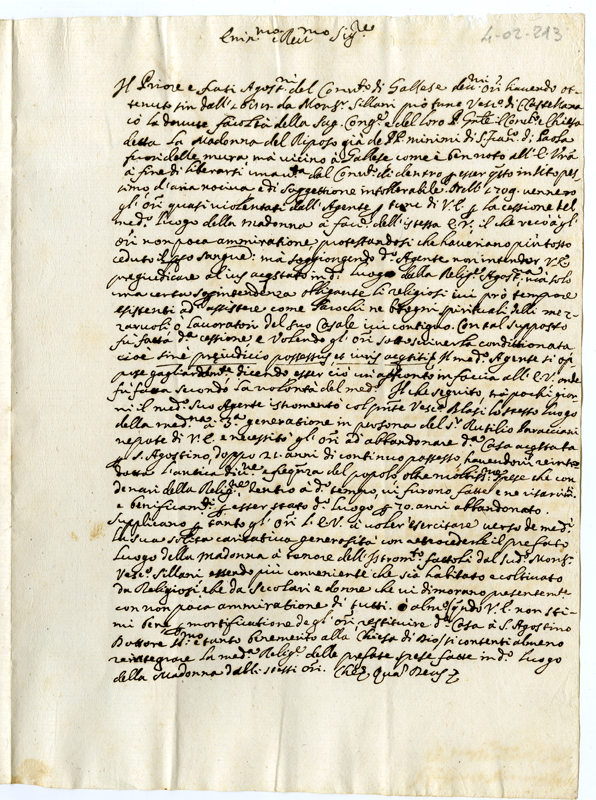 Emin.mo e Rev.mo Sig.re
4-02-213
Il Priore e frati Agost.ni del Conv.to di Gallese dev.mi or.i havendo ot-
tenuto sin dall' da Mons.r Sillani Vesc.o di Castellana
có le dovute facoltà della Sag. Cong.e e del loro il Conv.to e Chiesa
detta La Madonna del Riposo già de PP. minimi di S. Fran.co di Paola
fuori delle mura, mà vicino à Gallese come è ben noto all' E. V.ra
à fine di liberarsi dal Conv.to di dentro p esser in sito pes-
simo d'aria nociva e di soggettione intollerabile. Nell' 1709 vennero
gl' or.i quasi violentati dall' Agente p tune di V. E. p la cessione del
med.o Luogo della Madonna à fav.e dell' istessa E. V. il che recò à gl'
or.i non poca ammiratione protestandosi che haveriano più tosto
ceduto il sangue: mà soggiongendo d.o Agente non intender V. E.
pregiudicare al ius acq.stato in d.o Luogo della Relig.e Agost.na mà solo
una certa sopintendenza obligante li religiosi ivi pró tempore
esistenti ad assistere come Parochi ne bisogni spirituali delli mez-
zaruoli o lavoratori del suo Casale ivi contiguo. Con tal supposto
fù fatta d.a cessione, e volendo gl' or.i sottoscriverla conditionata
cioè sine preiudicio possessus et iuris acqtiti il med.o Agente si op-
pose gagliardam.te dicendo esser ciò un affronto in faccia all' E. V. onde
fù fatta secondo la volontà del med.o Il che seguito, trà pochi gior-
ni il med.o suo Agente istromentò col pnte Vesc.o Blasi lo stesso Luogo
della Mad.na à 3.a generatione in persona del S.r Rutilio Paracciani
nepote di V. E. e necessitò gl' or.i ad abbandonare d.a Casa acq.stata
p S. Agostino, doppo 21 anni di continuo possesso havendovi reintro
dotta l'antica div.ne e freq.nza del popolo oltre moltiss.e spese che con
denari della Relig.e dentro à d.o tempo, vi furono fatte e ne
e bonificam.ti p esser stato d.o Luogo p 70. anni abbandonato.
Supplicano p tanto gl' or.i l' E. V. à voler esercitare verso de med.i
la sua solita caritativa generosità con retrocederli il prefato
Luogo della Madonna à tenore dell' Istrom.to fattoli dal sud.o Mons.r
Vesc.o Sillani essendo più conveniente che sia habitato e coltivato
da Religiosi che da secolari e donne che vi dimorano psentem.te
con non poca ammiratione di tutti. ò alm.o q.ndo V. E. non sti-
mi bene p mortificatione de gl' or.i restituire d.a Casa à S. Agostino
Dottore e tanto benemerito alla Chiesa di Dio, si contenti almeno
reintegrare la med.a Relig.e delle prefate spese fatte in d.o Luogo
della Madonna dalli stessi or.i Che Quam Deus